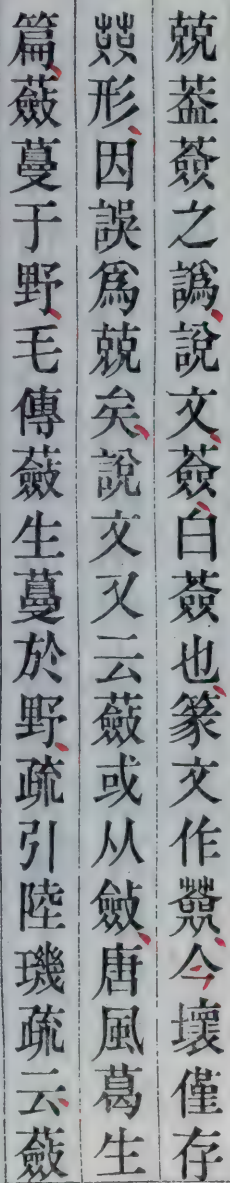 兢葢薟之譌說文薟白薟也篆文作薟今壞僅存
兢形因誤爲兢矣說文又云蘞或从斂唐風葛生
篇蘞蔓于野毛傳蘞生蔓於野疏引陸璣疏云蘞